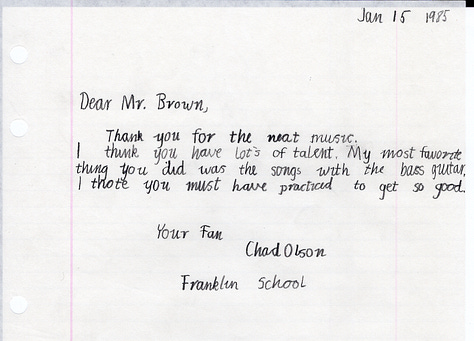 Jan 15 1985
Dear Mr. Brown,
Thank you for the neat music.
I think you have lot's of talent. My most favorite
thing you did was the songs with the bass guitar.
I thote you must have practiced to get so good.
Your Fan
Chad Olson
Franklin School